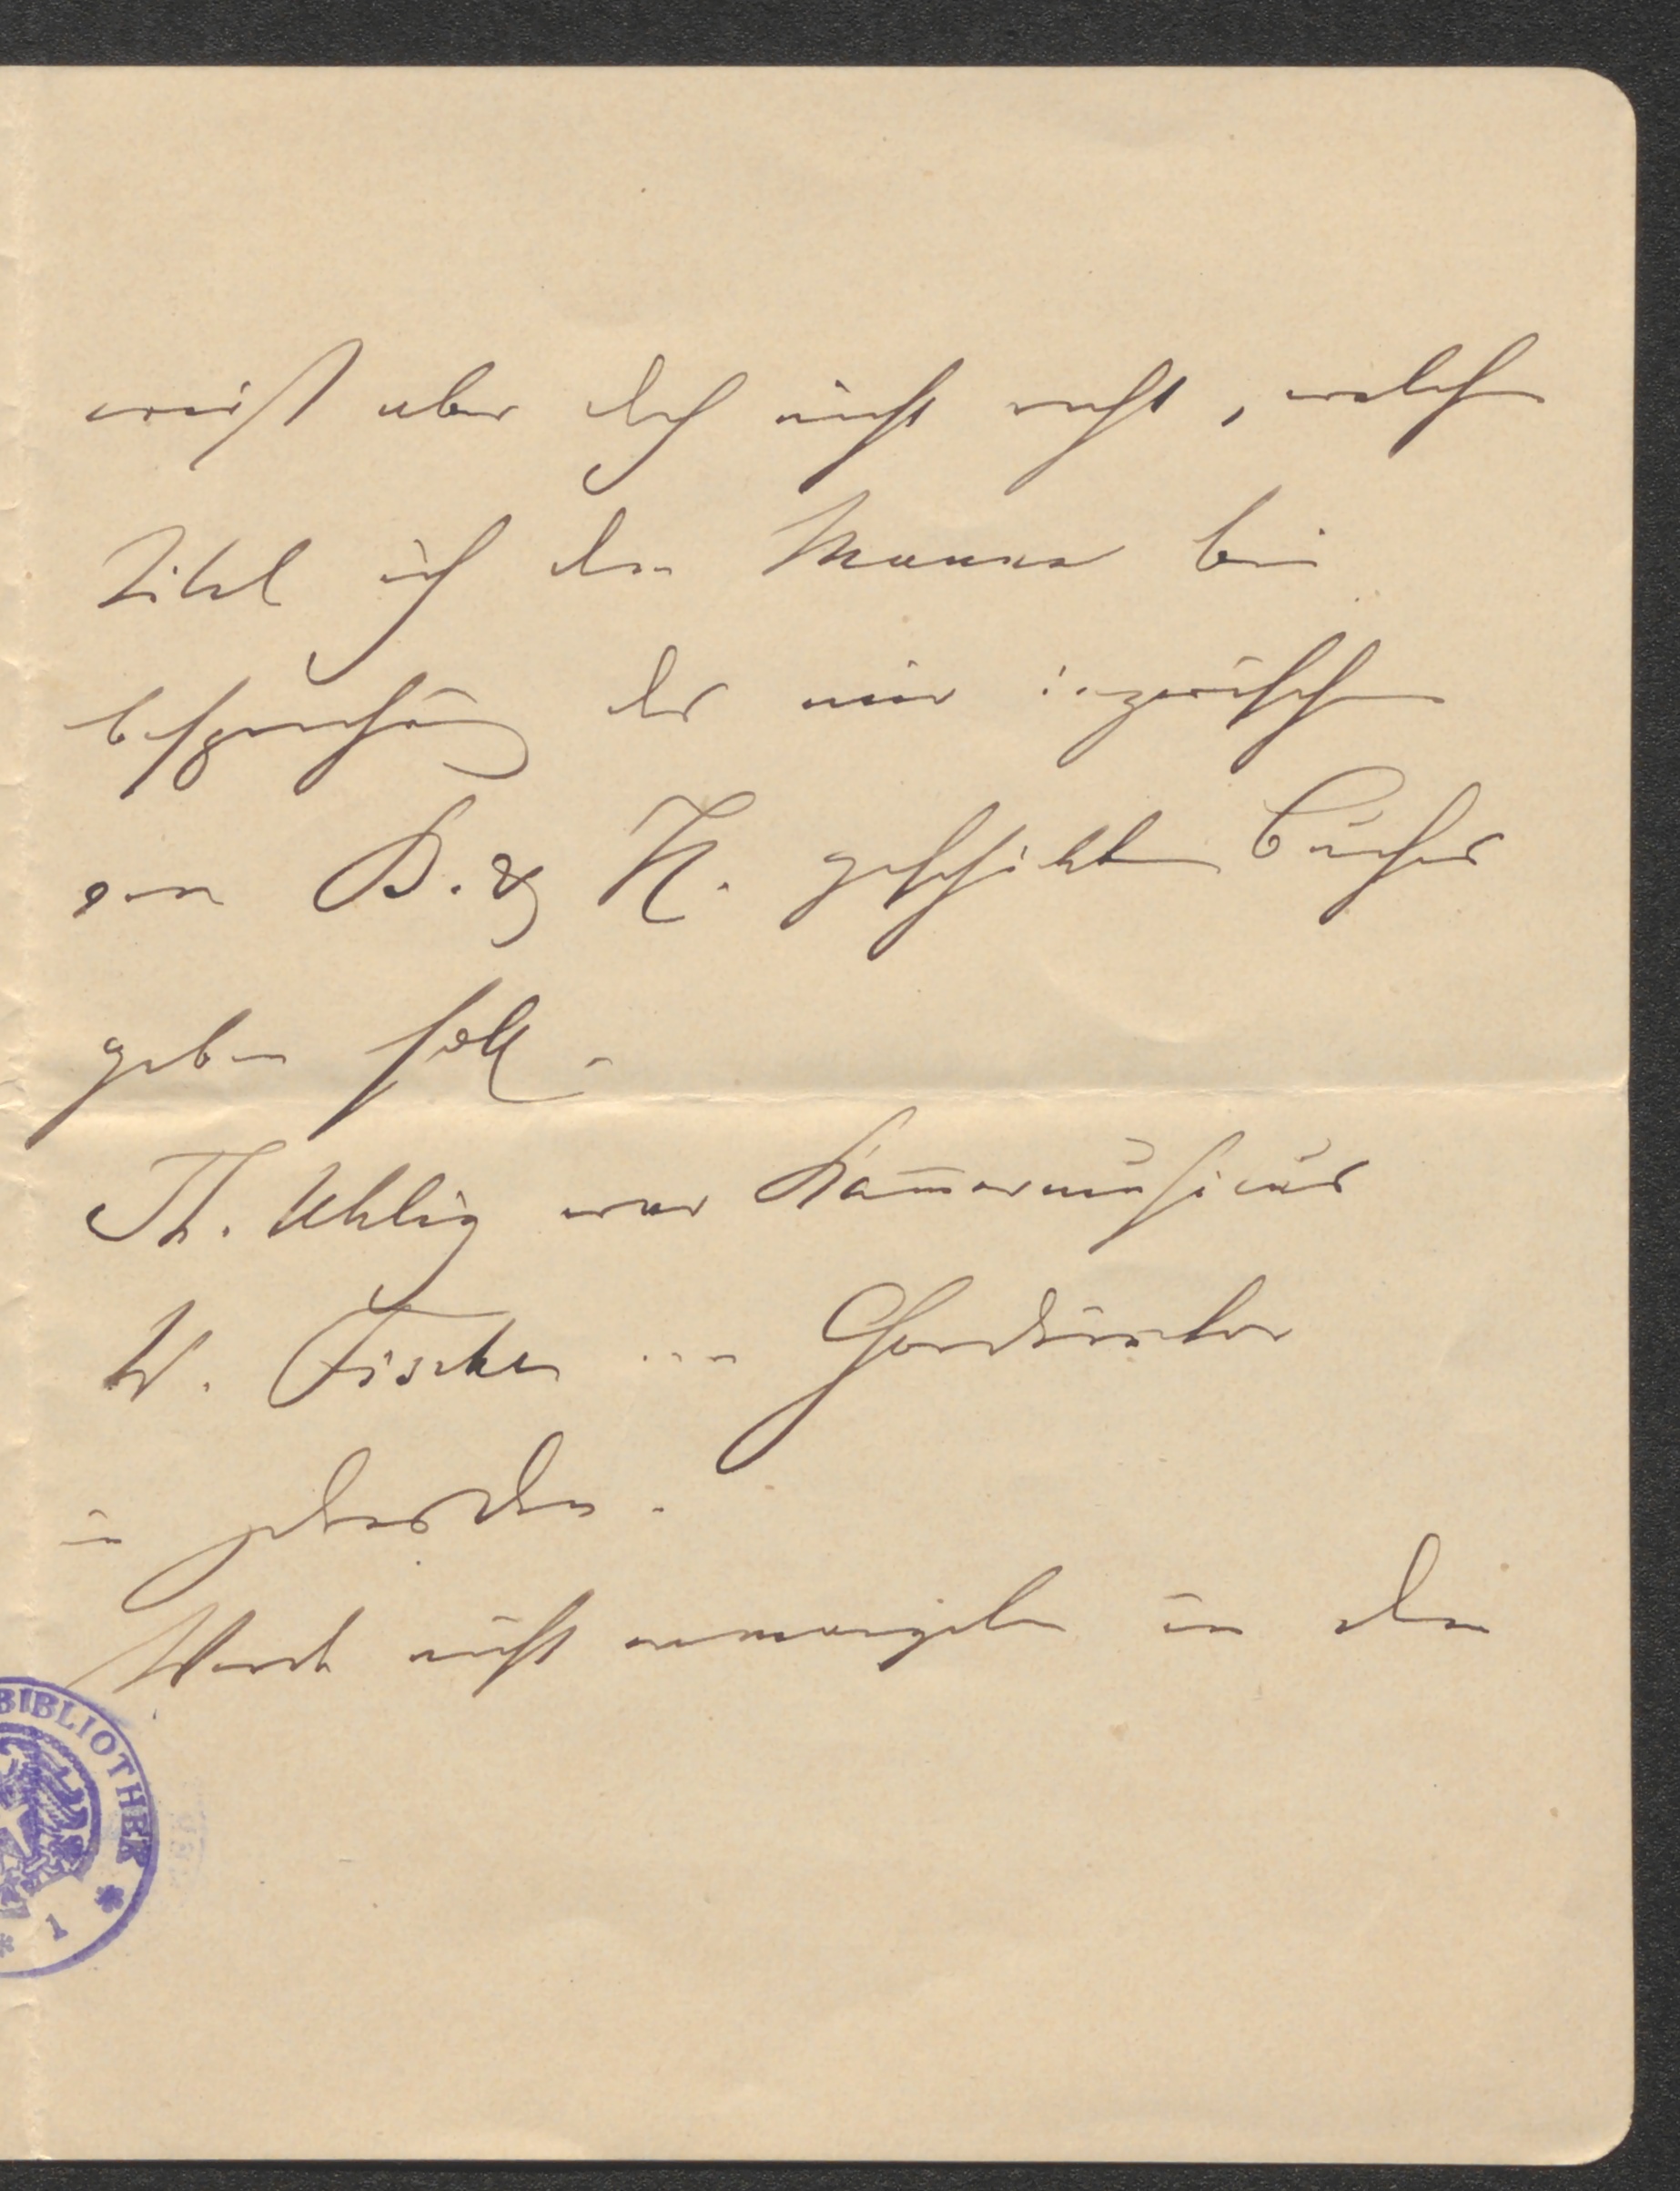 weiß aber doch nicht recht, welchen
Titel ich dem Manne bei
besprechung der mir inzwischen
von B. & H. geschickten Bücher
geben soll.
Th. Uhlig war Kam̅ermusicus
W. Fischer ... Chordirector
in Dresden.
Werde nicht ermangeln in den
BIBLIOTHEK
* 1 *